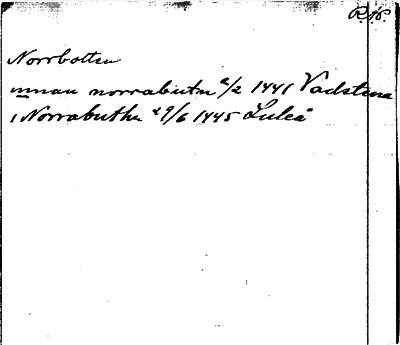 R.16.
Norrbotten
innan norrabutn 2/2 1441 Vadstena
i Norrabuthn 29/6 1445 Luleå